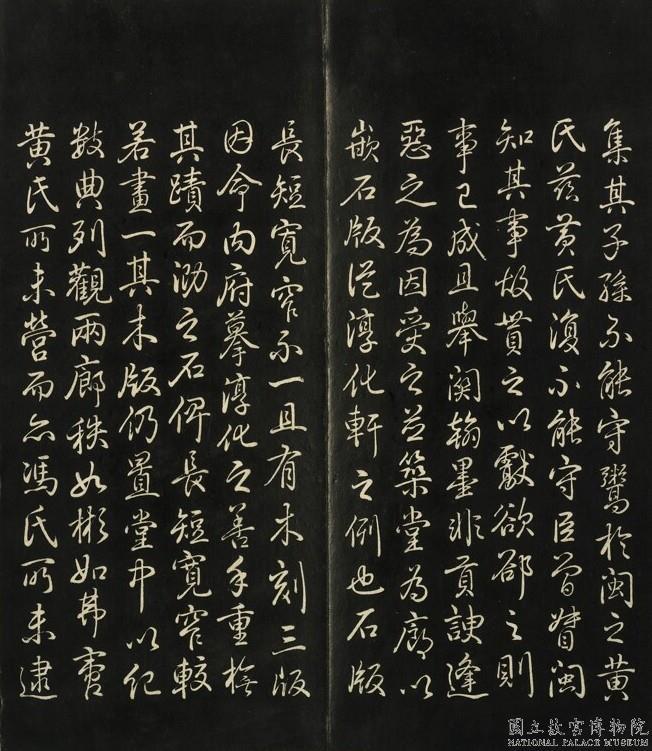 集其子孫不能守鬻於閩之黃
氏茲黃氏復不能守臣曾督閩
知其事故貰之以獻欲卻之則
事已成且舉關翰墨非貢諛逢
惡之為因受之並築堂為廊以
嵌石版從淳化軒之例也石版
長短寬窄不一且有木刻三版
因命內府摹淳化之善手重橅
其蹟而泐之石俾長短寬窄較
若畫一其木版仍置堂中以紀
數典列觀兩廊秩如彬如弗啻
黃氏所未營而亦馮氏所未逮
國立故宮博物院
NATIONAL PALACE MUSEUM